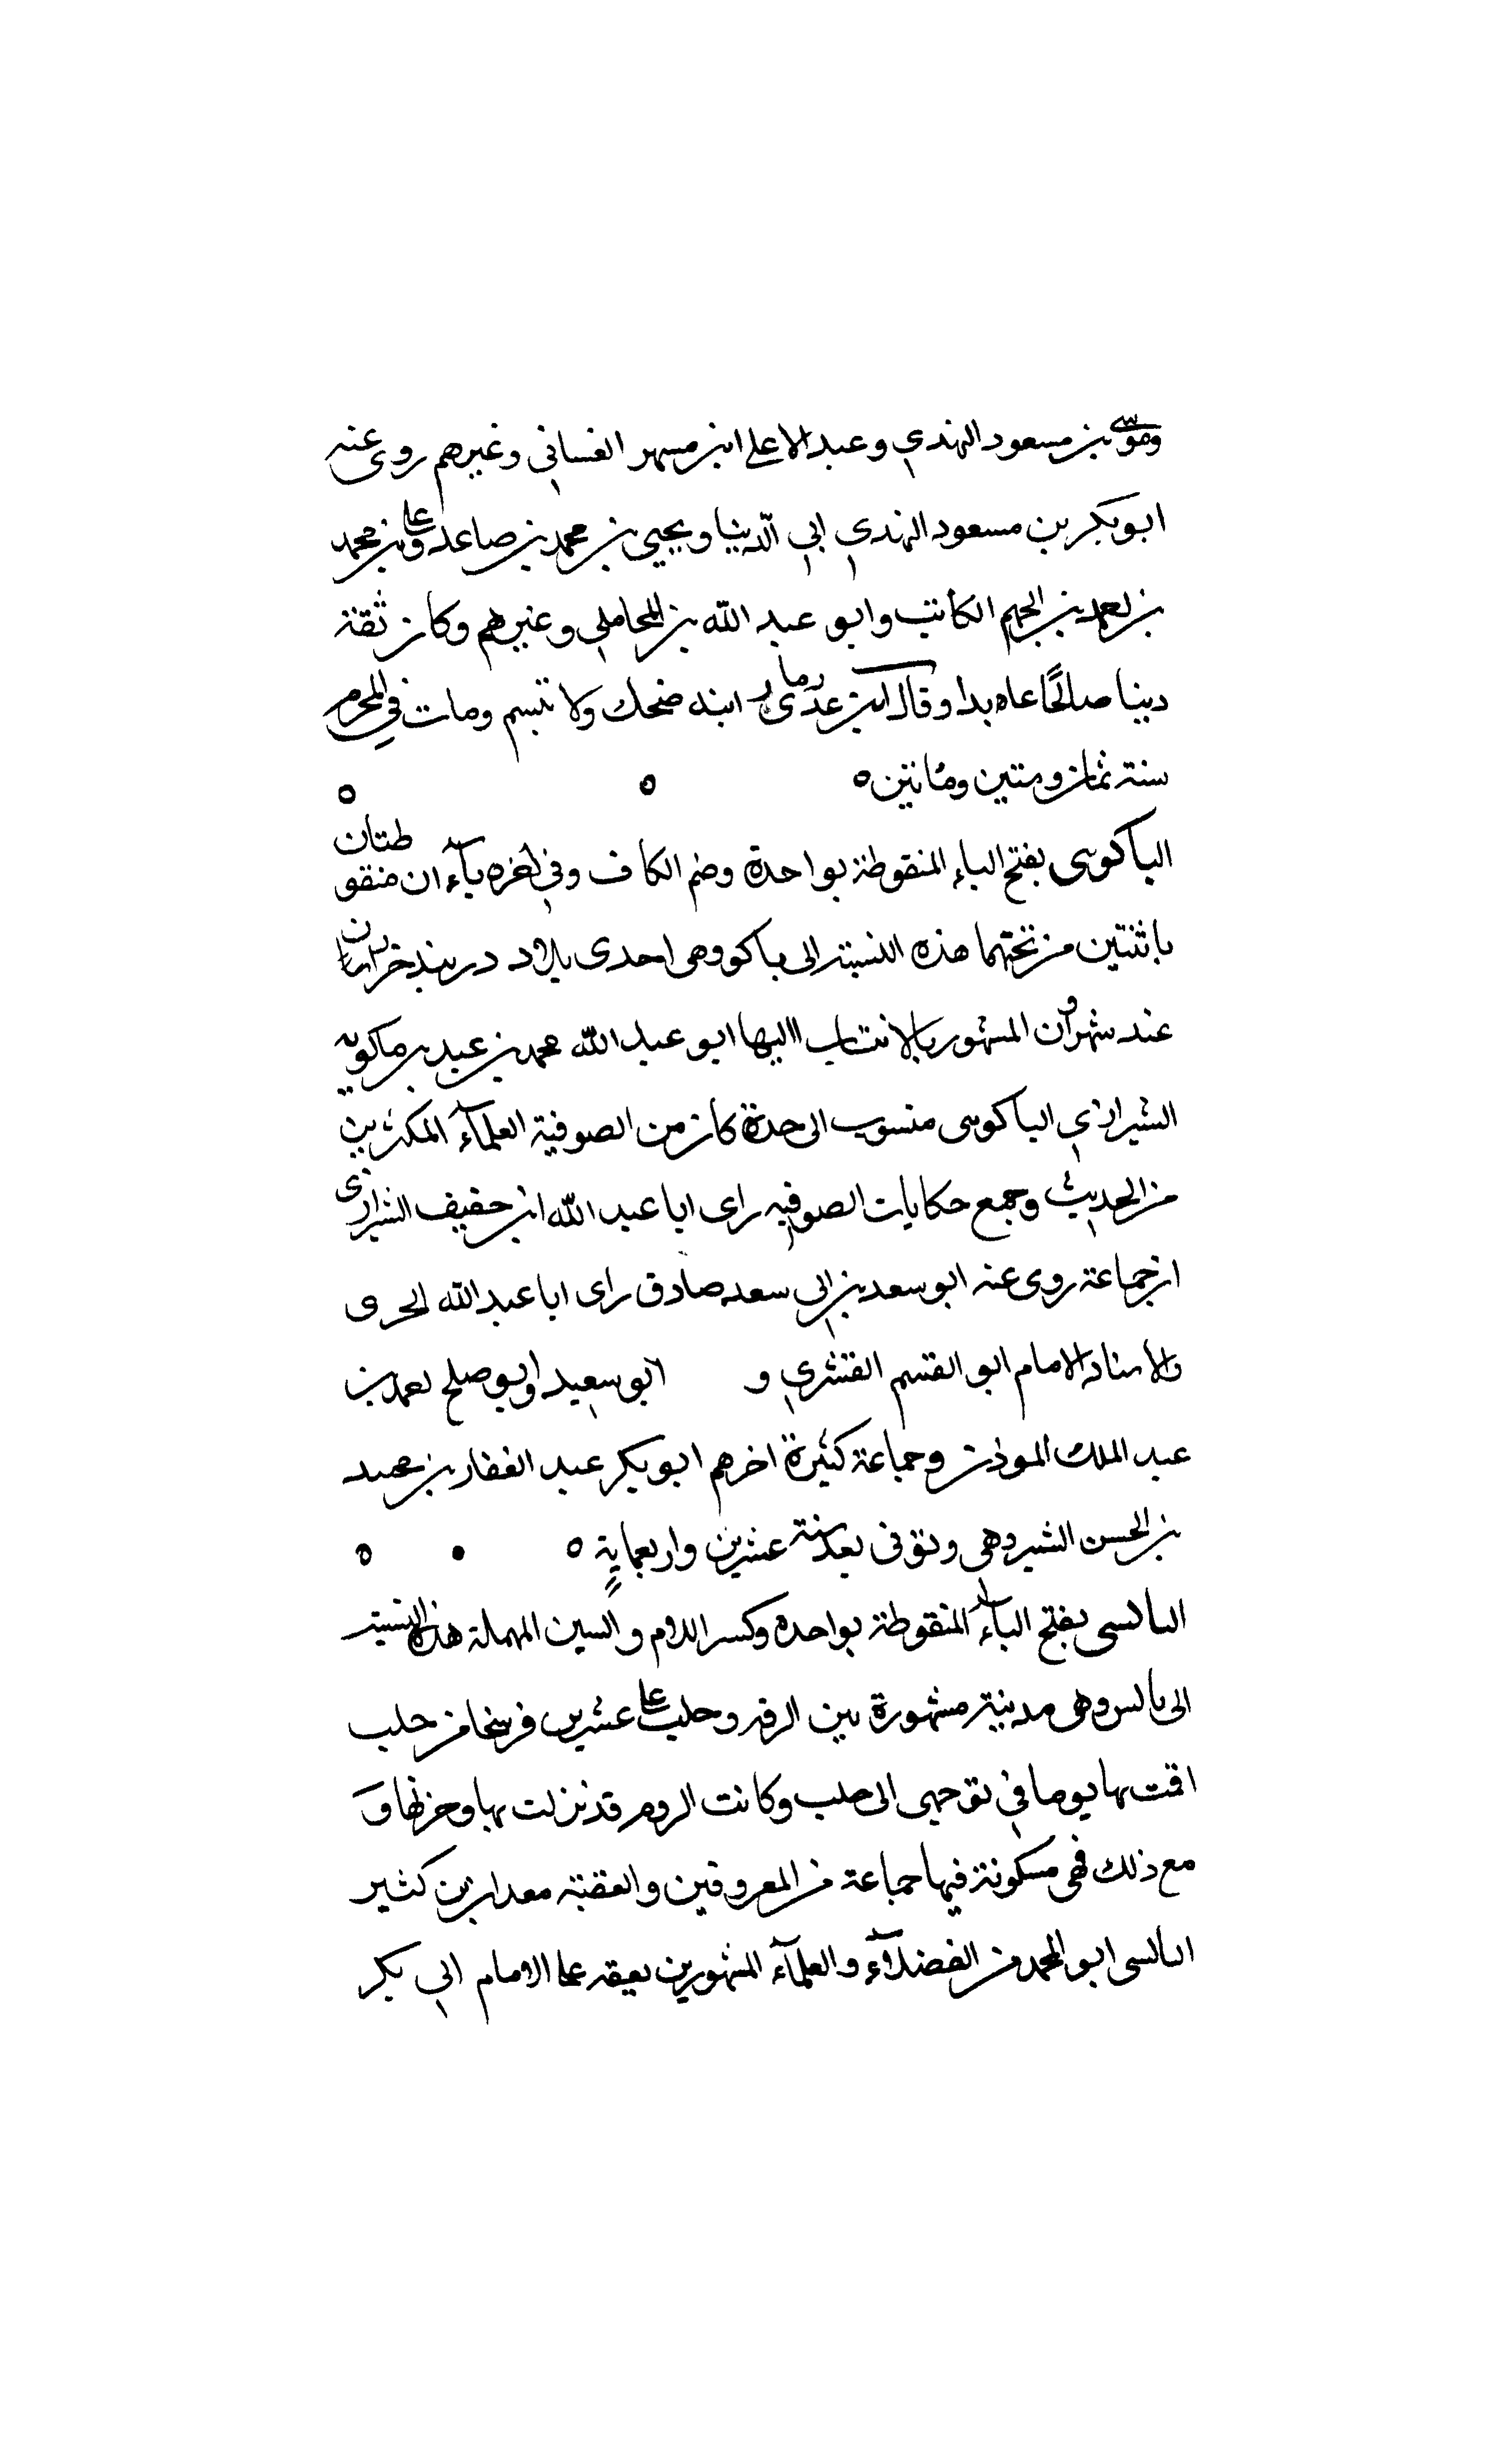 وموسى بن مسعود النهدي وعبد الاعلى ابن مسهر الغساني وغيرهم روى عنه
ابو بكر بن مسعود النهدي ابي الدينا ويحيى بن محمد بن صاعد وعلى بن محمد
بن احمد بن الجهم الكاتب وابو عبد الله بن المحاملي وغيرهم وكان ثقة
دينا صالحًا عابدا وقال ابن عدى ابنه ضحك ولا تبسم ومات في المحرم
سنة ثمان وستين ومأتين ه
الباكويى بفتح الباء المنقوطة بواحدة وضم الكاف وفى اخره ياءان منقوطتان
باثنتين من تحتهما هذه النسبة الى باكو وهى احدى بلاد دربند خزران
عند شروان المشهور بالانتساب اليها ابو عبد الله محمد بن عبد بن باكويه
الشيرازي الباكويى منسوب الى جده كان من الصوفية العلمآء المكثرين
من الحديث وجمع حكايات الصوفيه راى ابا عبد الله ابن خفيف الشيرازى
ان جماعة روى عنه ابو سعد بن ابي سعد صادق راى ابا عبد الله الحرى
والاستاد الامام ابو القسم القشري و ابو سعيد وابو صلح احمد بن
عبد الملك الموذن وجماعة كثيرة اخرهم ابو بكر عبد الغفار بن محمد
بن الحسن الشيروهى وتوفى بعد سنة عشرين واربعماية ه
البالسى بفتح البآء المنقوطة بواحدة وكسر اللام والسين المهملة هذه النسبة
الى بالس وهى مدينة مشهورة بين الرقه وحلب على عشرين فرسخا من حلب
اقمت بها يوما في توجهى الى حلب وكانت الروم قد نزلت بها وخربها و
مع ذلك فهى مسكونة فيها جماعة من المعروفين معدان بن كثير
البالسى ابو المحمد من الفضلآء والعلمآء المشهورين على الامام ابي بكر